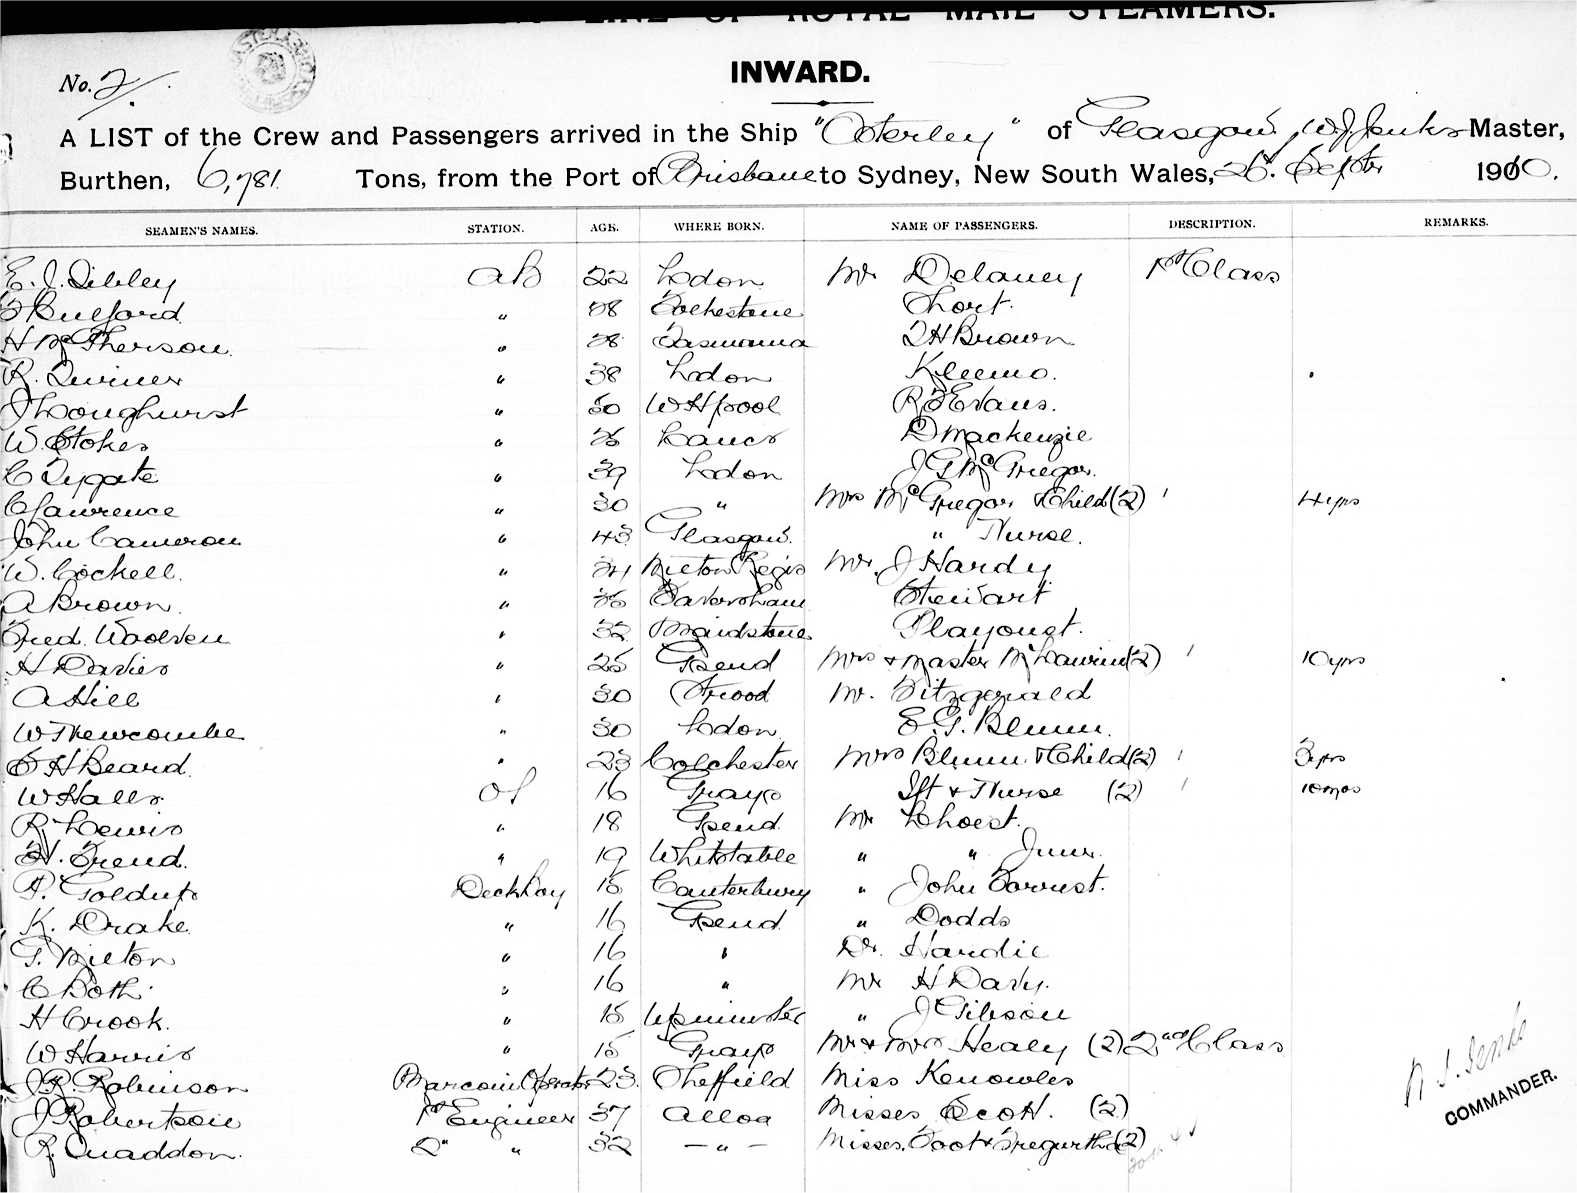 LINE OF ROYAL MAIL STEAMERS.
INWARD.
No. 2/.
A LIST of the Crew and Passengers arrived in the Ship "Osterley" of Glasgow, W.J. Jenks Master,
Burthen, 6,781 Tons, from the Port of Brisbane to Sydney, New South Wales, 26. Septbr 1910.
SEAMEN'S NAMES. STATION. AGE. WHERE BORN. NAME OF PASSENGERS. DESCRIPTION. REMARKS.
E. J. Sibley AB 22 Lodon Mr Delaney 1st Class
Bulford " 28 Folkestone Short.
H McPherson " 28 Tasmania Brown
R. " 38 Lodon
J Longhurst " 50 WHpool R Evans.
W. Stokes " Lancs D Mackenzie
C Tygate " 39 Lodon J G McGregor.
C Lawrence " 30 " Mrs McGregor & Child (2) " 4 yrs
John Cameron " 43 Glasgow. " Nurse.
W. Cockell. " Milton Regis Mr. J Hardy
A Brown. " Faversham Stewart
Fred. Woolven " 32 Maidstone Playoust.
H Davies " 25 Gsend Mrs & Master McLaurin (2) " 10 yrs
A Hill " 30 Strood Mr. Fitzgerald
W Newcombe " 30 Lodon E. G. Blunn.
E H Beard. " 23 Colchester Mrs Blunn & Child (2) " 3 yrs
W Halls. OS 16 Grays Ift & Nurse (2) " 10 mos
R Lewis " 18 Gsend. Mr Lhoest.
H. Freud. " 19 Whitstable " " Junr.
P. Goldup Deck Boy 15 Canterbury " John Forrest.
K. Drake. " 16 Gsend " Dodds
G. Milton " 16 " Dr. Hardie
C Both. " 16 " Mr H Davy.
H Crook. " 15 Upminster " J Gibson
W Harris " 15 Grays Mr & Mrs Healy (2) 2nd Class
J R. Robinson Marconi Operator 23. Sheffield Miss Kenowles
J Robertson 1st Engineer 37 Alloa Misses Scott. (2)
R. Quaddon. 2" " 32 — " — Misses. Foot & Tregurtha (2)
W. J. Jenks
COMMANDER.